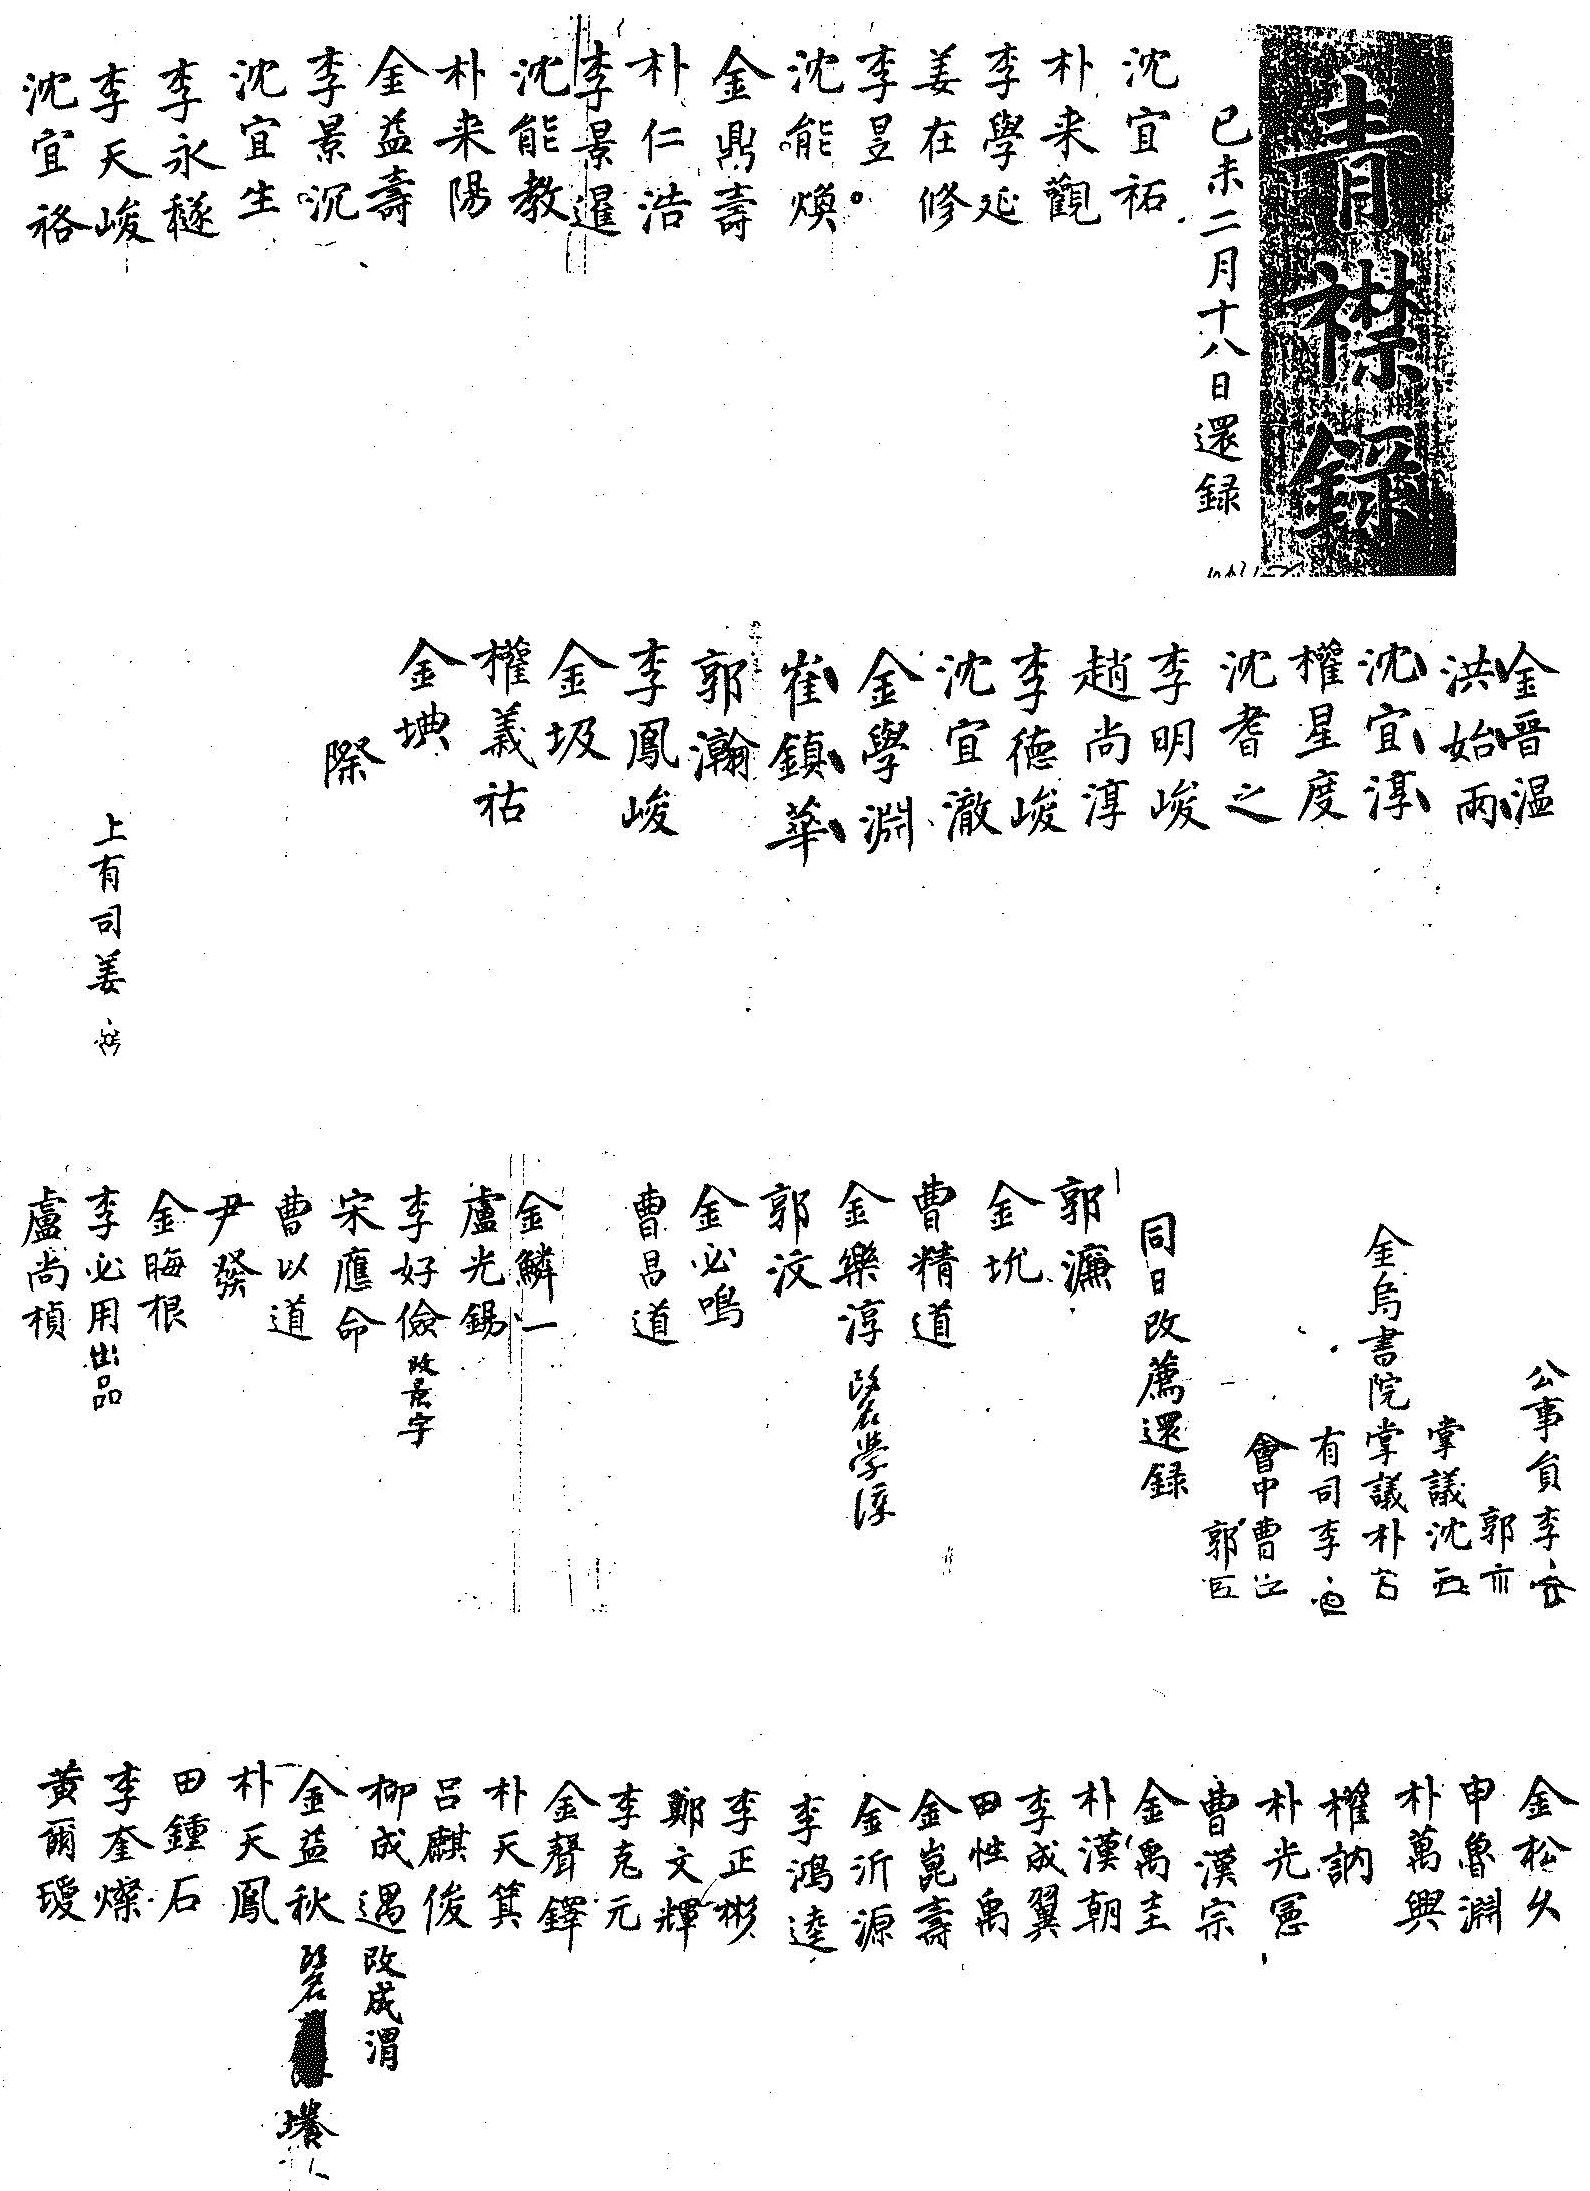 青襟録
己未二月十八日還録
沈宜祏
朴来觀
李學延
姜在修
李昱
沈能煥
金鼎壽
朴仁浩
李景暹
沈能教
朴来陽
金益壽
李景沉
沈宜生
李永穟
李天峻
沈宜袼
金晋温
洪始兩
沈宜淳
權星度
沈耆之
李明峻
趙尚淳
李德峻
沈宜澈
金學淵
崔鎮華
郭瀚
李鳳峻
金圾
權義祜
金㙉
際
上有司姜
公事員李
郭
掌議沈
金烏書院掌議朴
有司李
會中曹
郭
同日改薦還録
郭濂
金坹
曹精道
金樂淳 改名學淳
郭汶
金必鳴
曹昌道
金鱗一
盧光錫
李好儉 改景字
宋應命
曹以道
尹發
金晦根
李必用出品
盧尚楨
金松久
申魯淵
朴萬興
權訥
朴光寬
曹漢宗
金禹圭
朴漢朝
李成翼
田性禹
金崑壽
金沂源
李鴻逵
李正彬
鄭文輝
李克元
金聲鐸
朴天箕
呂麒俊
柳成遇 改成渭
金益秋 改名
朴天鳳
田鍾石
李奎燦
黄爾璦